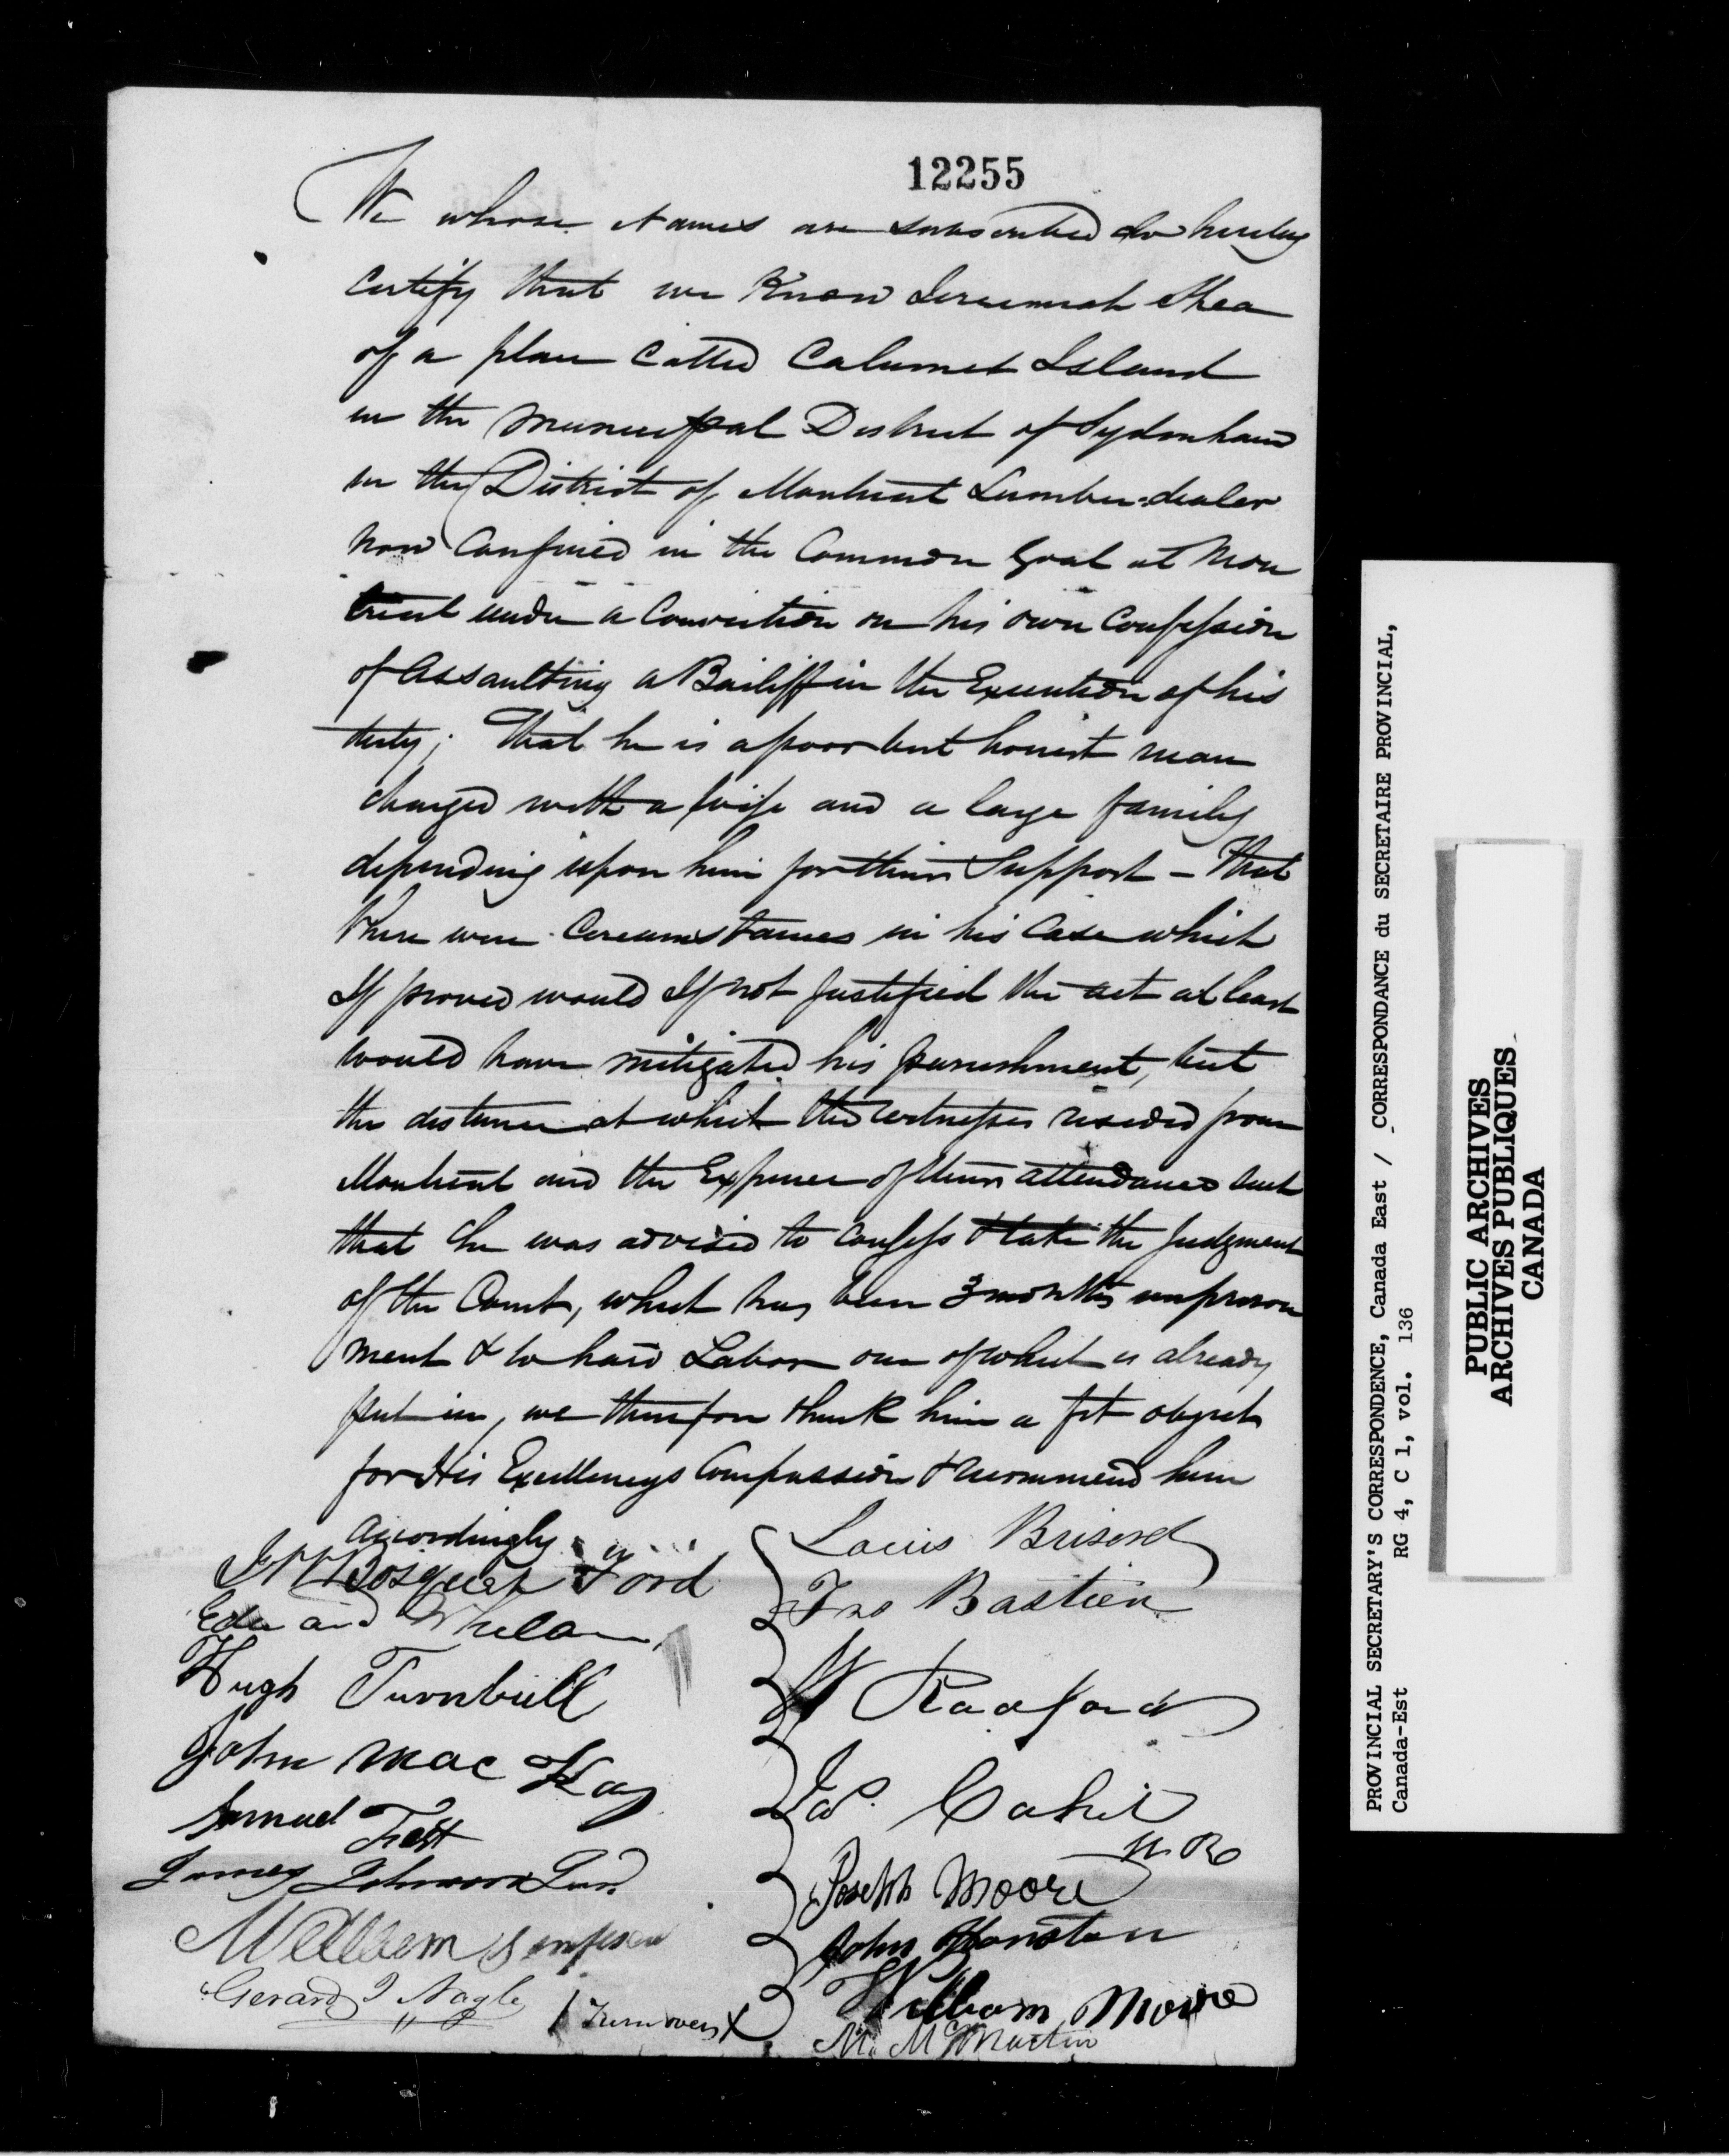 12255
We whose Names are subscribed do hereby
Certify that we Know Jeremiah Shea
of a place Called Calumet Island
in the Municipal District of Sydenham
in the District of Montreal Lumber-dealer
now Confined in the Common Goal at Mon
treal under a Conviction on his own Confession
of Assaulting a Bailiff in the Execution of his
duty; That he is a poor but honest man
charged with a wife and a large family
depending upon him for their Support - That
there were Circumstances in his Case which
If proved would If not Justified the act at least
would have mitigated his punishment, but
the distance at which the witnesses resided from
Montreal and the Expense of their attendance such
that he was advised to confess & take the Judgment
of the Court, which has been 3 months imprison
ment & to hard Labor one of which is already
put in, we therefore think him a fit object
for His Excellencys Compassion & recommend him
accordingly
Bosquet Ford
Edward Whelan
Hugh Turnbull
John Mac Kay
Samuel
James Johnson
William Simpson
Gerard J Nagle
Turn over
Louis Brisord
Jno Bastien
W Radford
Js. Cahil
Joseph Moore
John
William Moore
M. McMartin
PROVINCIAL SECRETARY'S CORRESPONDENCE, Canada East / CORRESPONDANCE du SECRETAIRE PROVINCIAL,
Canada-Est RG 4, C 1, vol. 136
PUBLIC ARCHIVES
ARCHIVES PUBLIQUES
CANADA